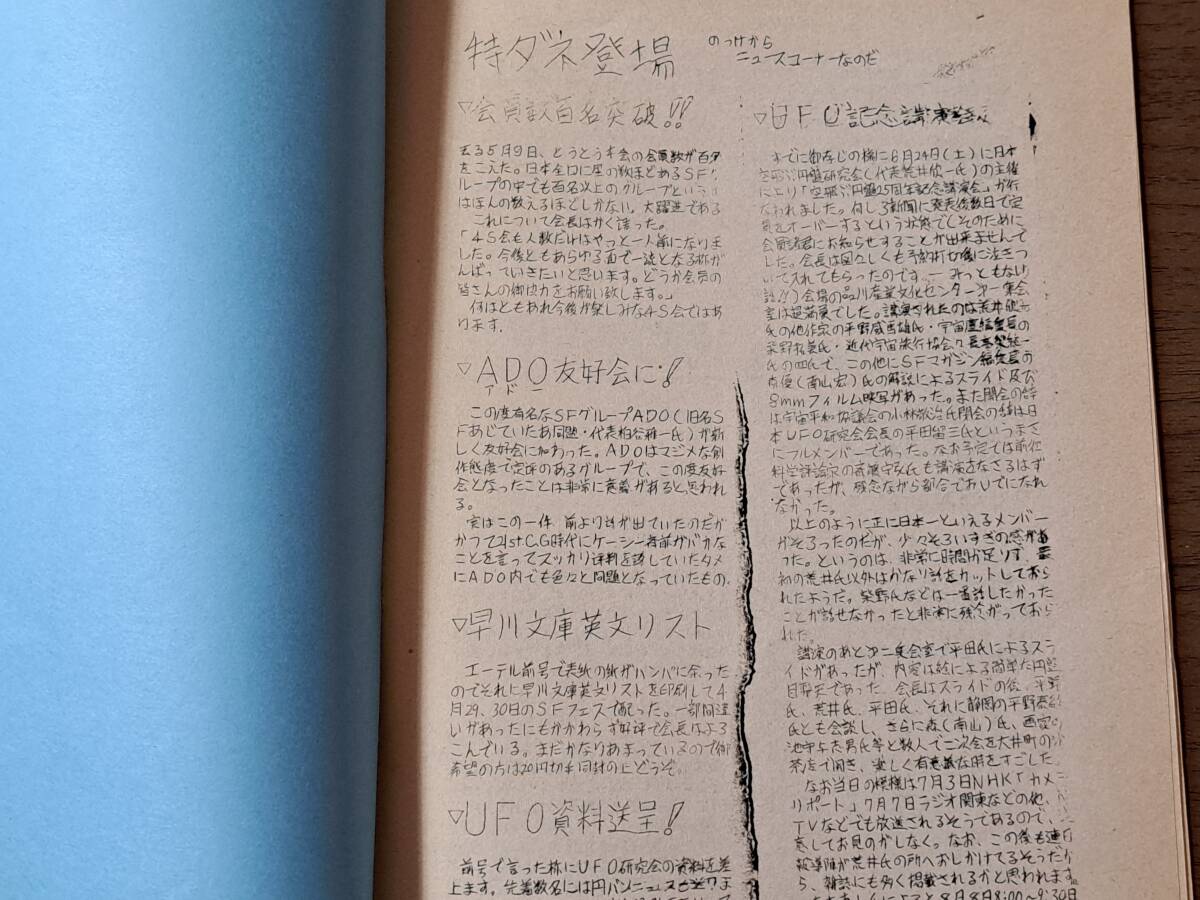 特ダネ登場
のっけから
ニュースコーナーなのだ
▽会員数百名突破!!
去る5月9日、とうとう本会の会員数が百名
をこえた。日本全口に星の数ほどあるSFグ
ループの中でも百名以上のグループという
はほんの数えるほどしかない。大躍進である
これについて会長はかく語った。
「4S会も人数だけはやっと一人前になりま
した。今後ともあらゆる面で一流となる称が
んばっていきたいと思います。どうか会員の
皆さんの御協力をお願い致します。」
何はともあれ今後が楽しみな4S会ではあ
ります。
▽ADO友好会に!
アドー
この度有名なSFグループADO(旧名S
Fあじていたあ同盟・代表柏谷雅一氏)が新
しく友好会に加わった。ADOはマジメな創
作態度で定評のあるグループで、この度友好
会となったことは非常に意義があると思われ
る。
実はこの一件 前より話が出ていたのだが
かつて21st.C.G時代にケーシー
がバカな
ことを言ってスッカリ評判を
していたタメ
にADO内でも色々と問題となっていたもの。
▽早川文庫英文リスト
エーテル前号で表紙の紙がハンパに余った
のでそれに早川文庫英文リストを印刷して4
月29、30日のSFフェスで配った。一部間違
いがあったにもかかわらず好評で会長はよろ
こんでいる。まだかなりあまっているので御
希望の方は20円切手同封の上どうぞ。
▽UFO資料送呈!
前号で言った称にUFO研究会の資料を差
上ます。先着数名には円バンニュース
▽UFO記念講演会
すでに御存じの様に6月24日(土)に日本
空飛ぶ円盤研究会(代表荒井欣一氏)の主催
により「空飛ぶ円盤25周年記念講演会」が行
なわれました。何しろ新聞に発表後数日で定
員をオーバーするという状態でしそのために
会員諸君にお知らせすることが出来ませんで
した。会長は図々しくも予約〆切後に泣きつ
いて入れてもらったのです。— みっともない
話!!)会場の品川産業文化センター第一集会
室は超満員でした。講演されたのは荒井欣一
氏の他作家の平野威馬雄氏・宇宙塵編集長の
柴野拓美氏・近代宇宙旅行協会々長高梨純一
氏の四氏で、この他にSFマガジン編集長の
森優(南山宏)氏の解説によるスライド及び
8mmフィルム映写があった。また開会の辞
は宇宙平和協議会の小林
氏閉会の辞は日
本UFO研究会会長の平田留三氏というまさ
にフルメンバーであった。なお予定では前衛
科学評論家の斎藤守弘氏も講演をなさるはず
であったが、残念ながら都合でおいでになれ
なかった。
以上のように正に日本一といえるメンバー
がそろったのだが、少々そろいすぎの感があ
った。というのは、非常に時間が足りず、最
初の荒井氏以外はかなり話をカットしておら
れたようだ。柴野氏などは一番話したかった
ことが話せなかったと非常に残念がっておら
れた。
講演のあと第二集会室で平田氏によるスラ
イドがあったが、内容は絵による簡単な円盤
目撃史であった。会長はスライドの後、平野
氏、荒井氏、平田氏、それに静岡の平野
氏とも会談し、さらに森(南山)氏、
池
与志男氏等と数人で二次会を大井町の
茶店で開き、楽しく有意義な時をすごした。
なお当日の模様は7月3日NHK「カメラ
リポート」7月7日ラジオ関東などの他、
TVなどでも放送されるそうであるので、
意してお見のがしなく。なお、この後も連日
報導陣が荒井氏の所へおしかけてるそうだか
ら、雑誌にも多く掲載されるかと思われます。
8月8日8:00~9:30